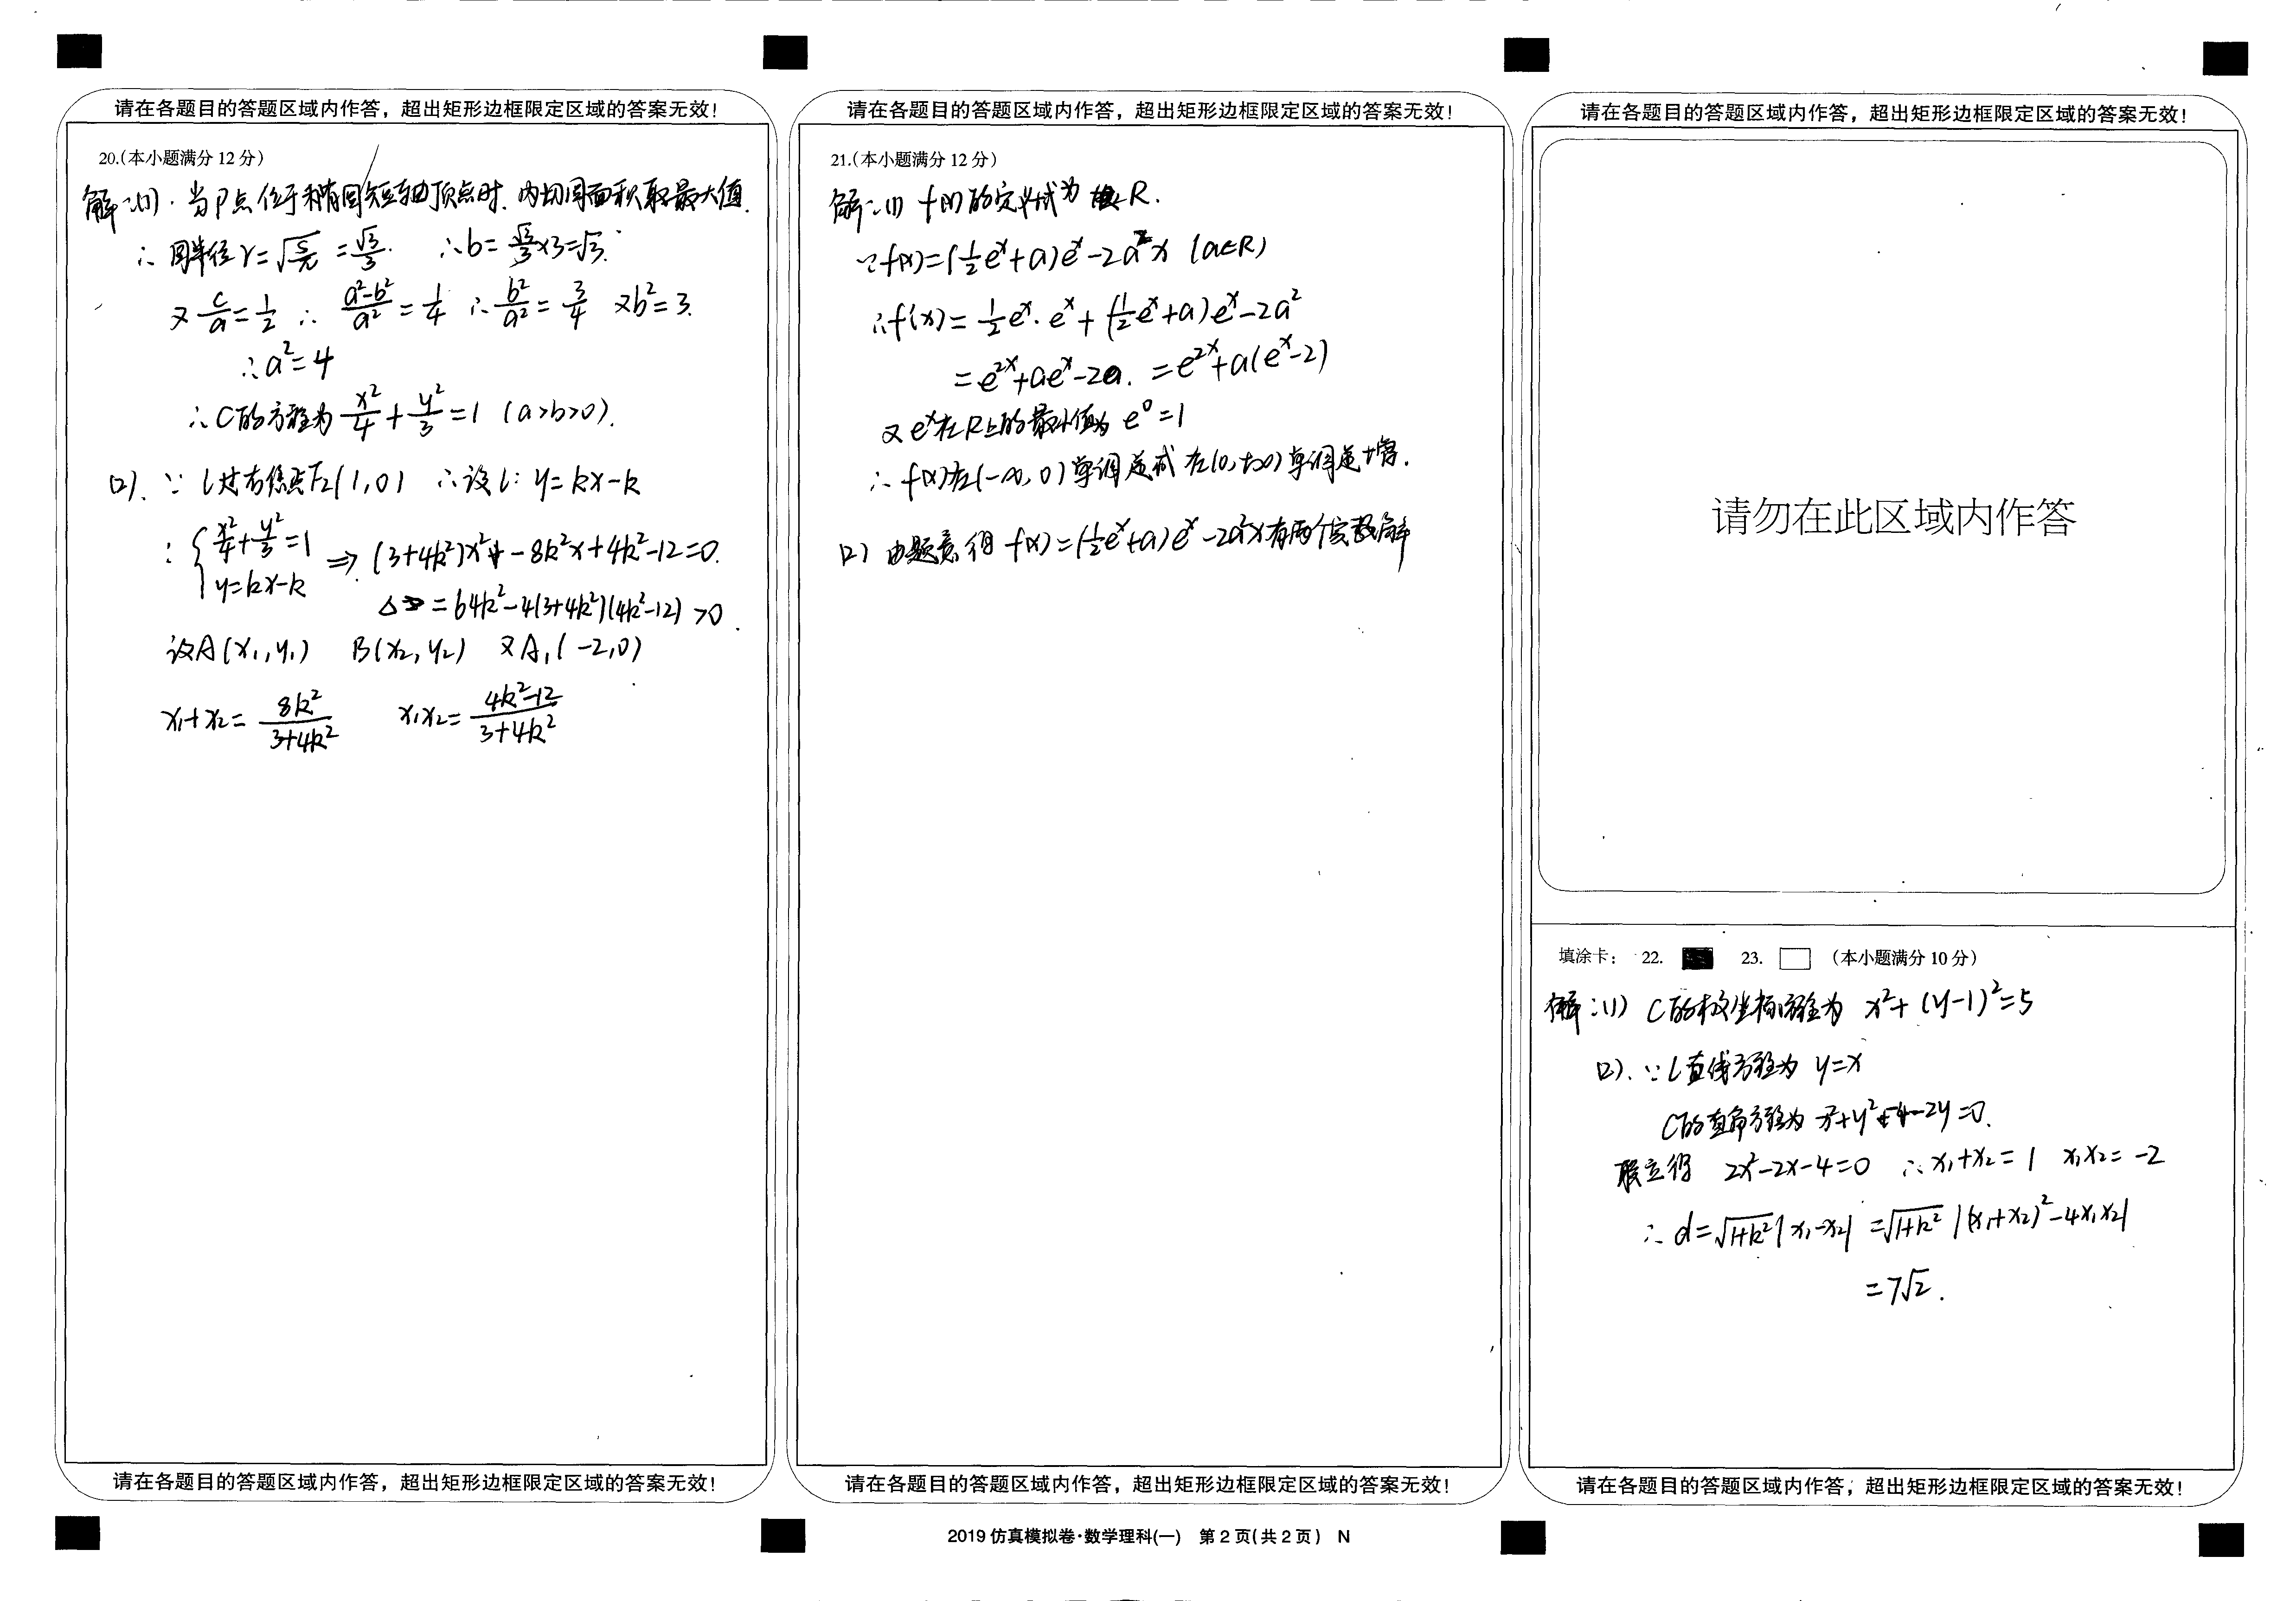 请在各题目的答题区域内作答，超出矩形边框限定区域的答案无效！
20.(本小题满分 12 分)
解：(1)．当P点位于椭圆短轴顶点时．内切圆面积取最大值．
∴ 圆半径 r=√(S/π) =√3/3. ∴b=√3/3×3=√3.
又 c/a=1/2 ∴ (a²-b²)/a²=1/4 ∴ b²/a²=3/4 又b²=3.
∴a²=4
∴C的方程为 x²/4+y²/3=1 (a>b>0).
(2). ∵ l过右焦点F₂(1,0) ∴设l: y=kx-k
∴ {x²/4+y²/3=1
y=kx-k ⇒ (3+4k²)x²-8k²x+4k²-12=0.
Δ=64k²-4(3+4k²)(4k²-12)>0.
设A(x₁,y₁) B(x₂,y₂) 又A₁(-2,0)
x₁+x₂=8k²/(3+4k²) x₁x₂=(4k²-12)/(3+4k²)
请在各题目的答题区域内作答，超出矩形边框限定区域的答案无效！
请在各题目的答题区域内作答，超出矩形边框限定区域的答案无效！
21.(本小题满分 12 分)
解：(1) f(x)的定义域为 R.
∵f(x)=(½eˣ+a)eˣ-2a²x (a∈R)
∴f'(x)=½eˣ·eˣ+(½eˣ+a)eˣ-2a²
=e²ˣ+aeˣ-2a. =e²ˣ+a(eˣ-2)
又eˣ在R上的最小值为 e⁰=1
∴ f(x)在(-∞,0)单调递减 在(0,+∞)单调递增.
(2) 由题意得 f(x)=(½eˣ+a)eˣ-2a²x有两个实数解
请在各题目的答题区域内作答，超出矩形边框限定区域的答案无效！
请在各题目的答题区域内作答，超出矩形边框限定区域的答案无效！
请勿在此区域内作答
填涂卡： 22. 23. (本小题满分 10 分)
解：(1) C的极坐标方程为 x²+(y-1)²=5
(2). ∵l直线方程为 y=x
C的直角方程为 x²+y²-4-2y=0.
联立得 2x²-2x-4=0 ∴x₁+x₂=1 x₁x₂=-2
∴ d=√(1+k²)|x₁-x₂| =√(1+k²) |(x₁+x₂)²-4x₁x₂|
=7√2.
请在各题目的答题区域内作答，超出矩形边框限定区域的答案无效！
2019 仿真模拟卷·数学理科(一) 第 2 页(共 2 页) N